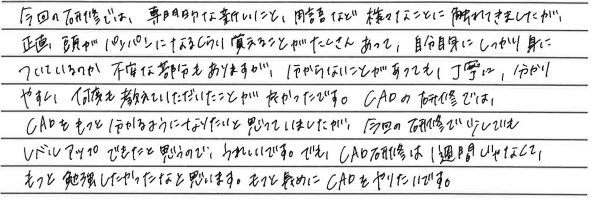 今回の研修では、専門的な新しいこと、用語など様々なことに触れてきましたが、
正直、頭がパンパンになるくらい覚えることがたくさんあって、自分自身にしっかり身に
ついているのか不安な部分もありますが、分からないことがあっても、丁寧に、分かり
やすく、何度も教えていただいたことが良かったです。CADの研修では、
CADをもっと分かるようになりたいと思っていましたが、今回の研修で少しでも
レベルアップできたと思うので、うれしいです。でも、CAD研修は1週間じゃなくて、
もっと勉強したかったなと思います。もっと長めにCADをやりたいです。